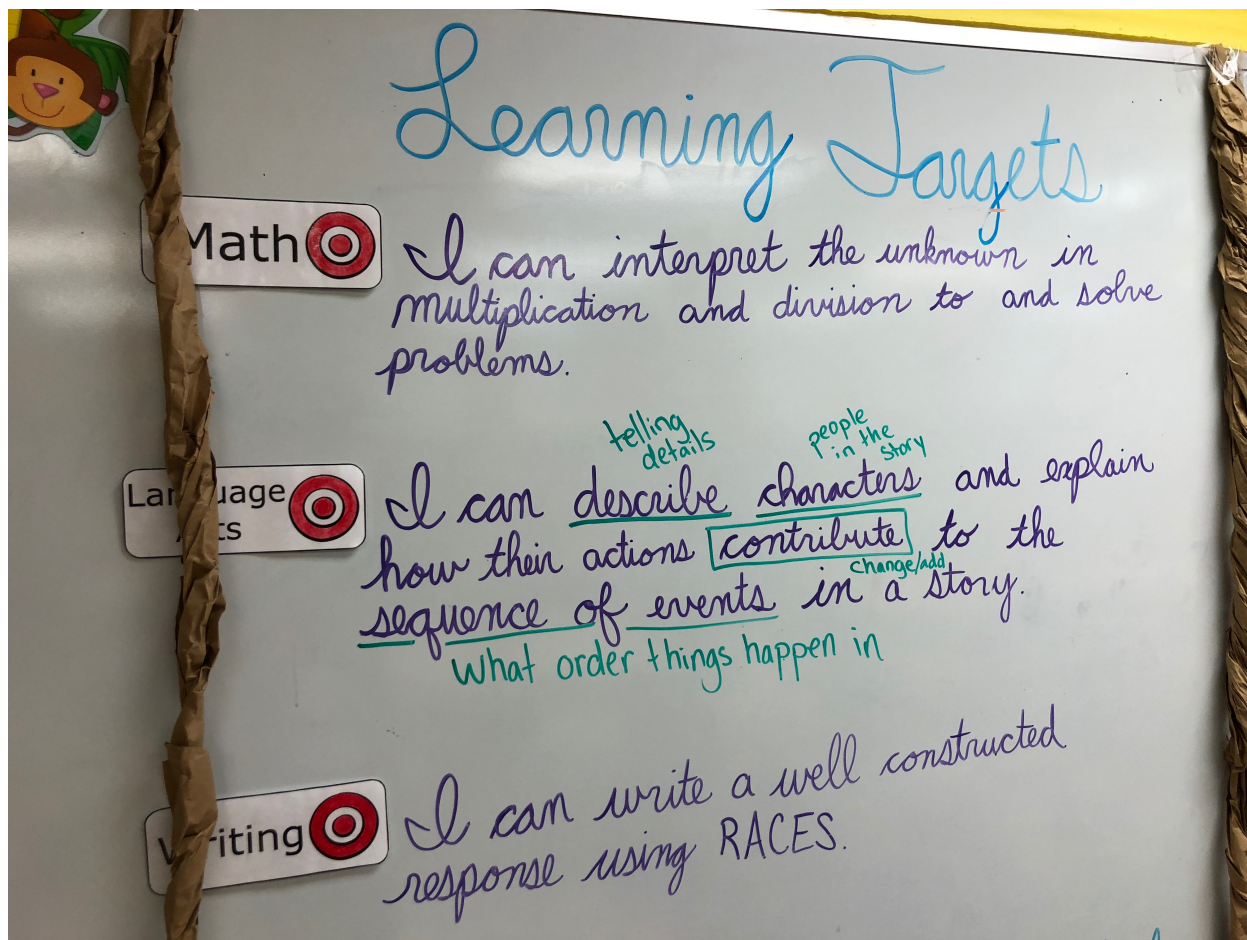 Learning Targets
Math
I can interpret the unknown in
multiplication and division to and solve
problems.
telling
details
people
in the
story
Language
Arts
I can describe characters and explain
how their actions contribute to the
change/add
sequence of events in a story.
What order things happen in
Writing
I can write a well constructed
response using RACES.